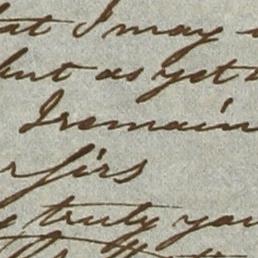 at I may
but as yet
I remain
r Sirs
y truly you